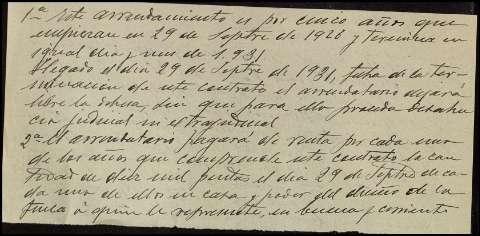 1ª Este arrendamiento es por cinco años que
empiezan en 29 de Septre de 1926 y termina en
igual dia y mes de 1.931
Llegado el dia 29 de Septre de 1931, fecha de la ter-
minacion de este contrato el arrendatario dejará
libre la dehesa, sin que para ello preceda desahu-
cio judicial ni extrajudicial
2ª El arrendatario pagará de renta por cada uno
de los años que comprende este contrato la can-
tidad de diez mil pesetas el dia 29 de Septre de ca-
da uno de ellos en casa y poder del dueño de la
finca ó quien le represente, en buena y corriente